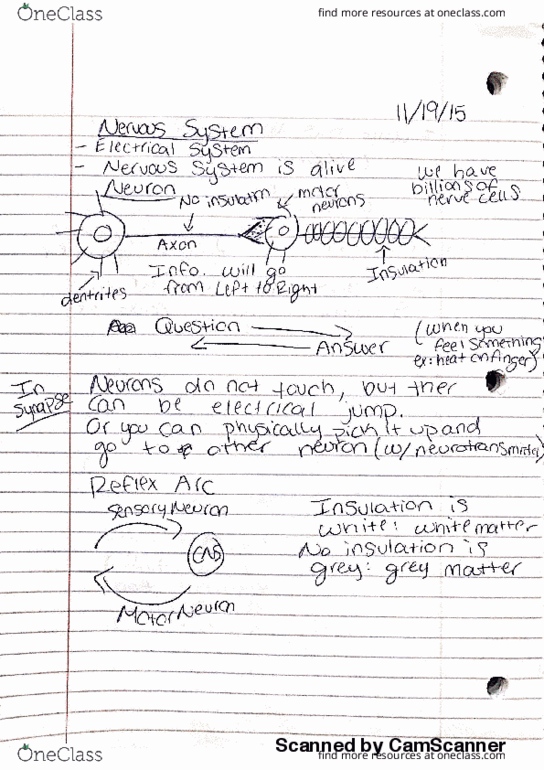 OneClass
find more resources at oneclass.com
11/19/15
Nervous System
- Electrical System
- Nervous System is alive
we have
billions of
nerve cells
Neuron
No insulation
motor
neurons
Axon
Insulation
dentrites
Info. will go
from Left to Right
Question
Answer
(when you
feel something
ex: heat on finger)
In
synapse
Neurons do not touch, but ther
can be electrical jump.
Or you can physically pick it up and
go to other neuron (w/ neurotransmitter)
Reflex Arc
Sensory Neuron
CNS
Motor Neuron
Insulation is
white: white matter
No insulation is
grey: grey matter
Scanned by CamScanner
OneClass
find more resources at oneclass.com